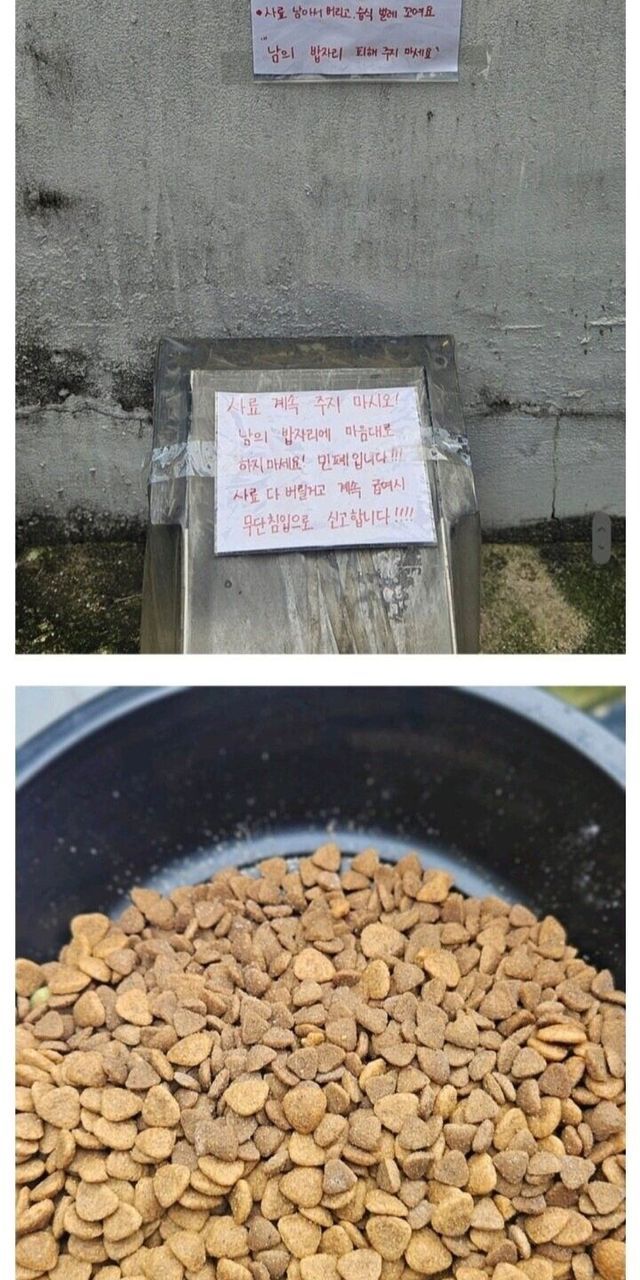 •사료 남아서 버리고. 음식 벌레 꼬여요
"남의 밥자리 피해 주지 마세요"
사료 계속 주지 마시오!
남의 밥자리에 마음대로
하지마세요! 민폐입니다!!!
사료 다 버릴거고 계속 급여시
무단침입으로 신고합니다!!!!